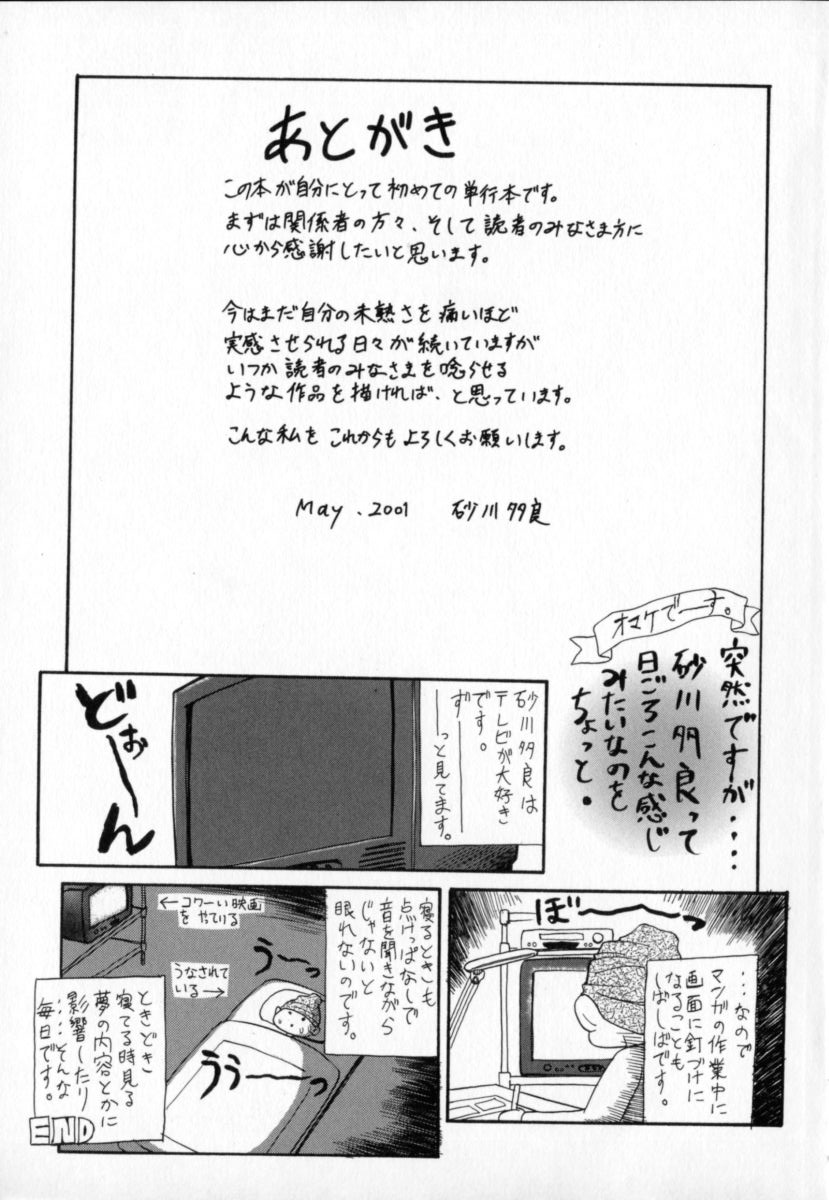 あとがき
この本が自分にとって初めての単行本です。
まずは関係者の方々、そして読者のみなさま方に
心から感謝したいと思います。
今はまだ自分の未熟さを痛いほど
実感させられる日々が続いていますが
いつか読者のみなさまを唸らせる
ような作品を描ければ、と思っています。
こんな私をこれからもよろしくお願いします。
May.2001 砂川多良
オマケでーす。
突然ですが‥‥
砂川多良って
日ごろこんな感じ
みたいなのを
ちょっと。
砂川多良は
テレビが大好き
です。
ずーーー
ーーっと見てます。
どぉーーん
…なので
マンガの作業中に
画面に釘づけに
なることも
しばしばです。
ぼ〜〜〜っ
寝るときも
点けっぱなしで
音を聞きながら
じゃないと
眠れないのです。
←コワーい映画
をやっている
うなされて
いる→
う〜〜っ
うぅ〜〜っ
ときどき
寝てる時見る
夢の内容とかに
影響したり
‥‥そんな
毎日です。
END